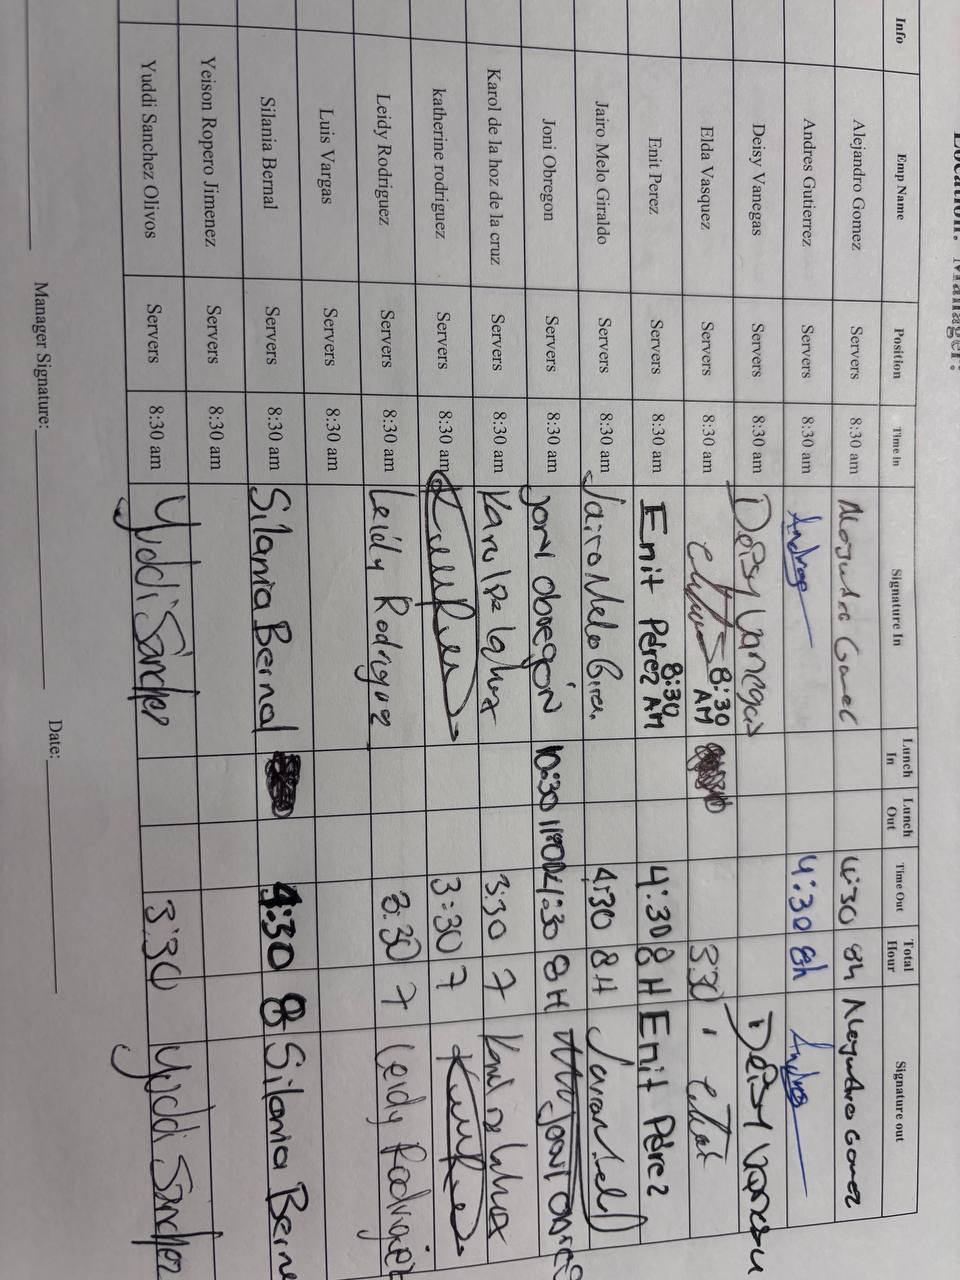 Location: Manager:
Info Emp Name Position Time in Signature In Lunch In Lunch Out Time Out Total Hour Signature out
Alejandro Gomez Servers 8:30 am 4:30 8h
Andres Gutierrez Servers 8:30 am 4:30 8h
Deisy Vanegas Servers 8:30 am Deisy Vanegas Deisy
Elda Vasquez Servers 8:30 am 8:30 AM 3:30
Enit Perez Servers 8:30 am Enit Pérez 8:30 AM 4:30 8 H Enit Pérez
Jairo Melo Giraldo Servers 8:30 am Jairo Melo 4:30 8 H
Joni Obregon Servers 8:30 am Joni Obregón 10:30 11:00 4:30 8 H Joni
Karol de la hoz de la cruz Servers 8:30 am Karol De la hoz 3:30 7
katherine rodriguez Servers 8:30 am 3:30 7
Leidy Rodriguez Servers 8:30 am Leidy Rodriguez 3:30 7 Leidy Rodriguez
Luis Vargas Servers 8:30 am
Silania Bernal Servers 8:30 am Silania Bernal 4:30 8 Silania Berna
Yeison Ropero Jimenez Servers 8:30 am
Yuddi Sanchez Olivos Servers 8:30 am Yuddi Sánchez 3:30 Yuddi Sánchez
Manager Signature: Date: